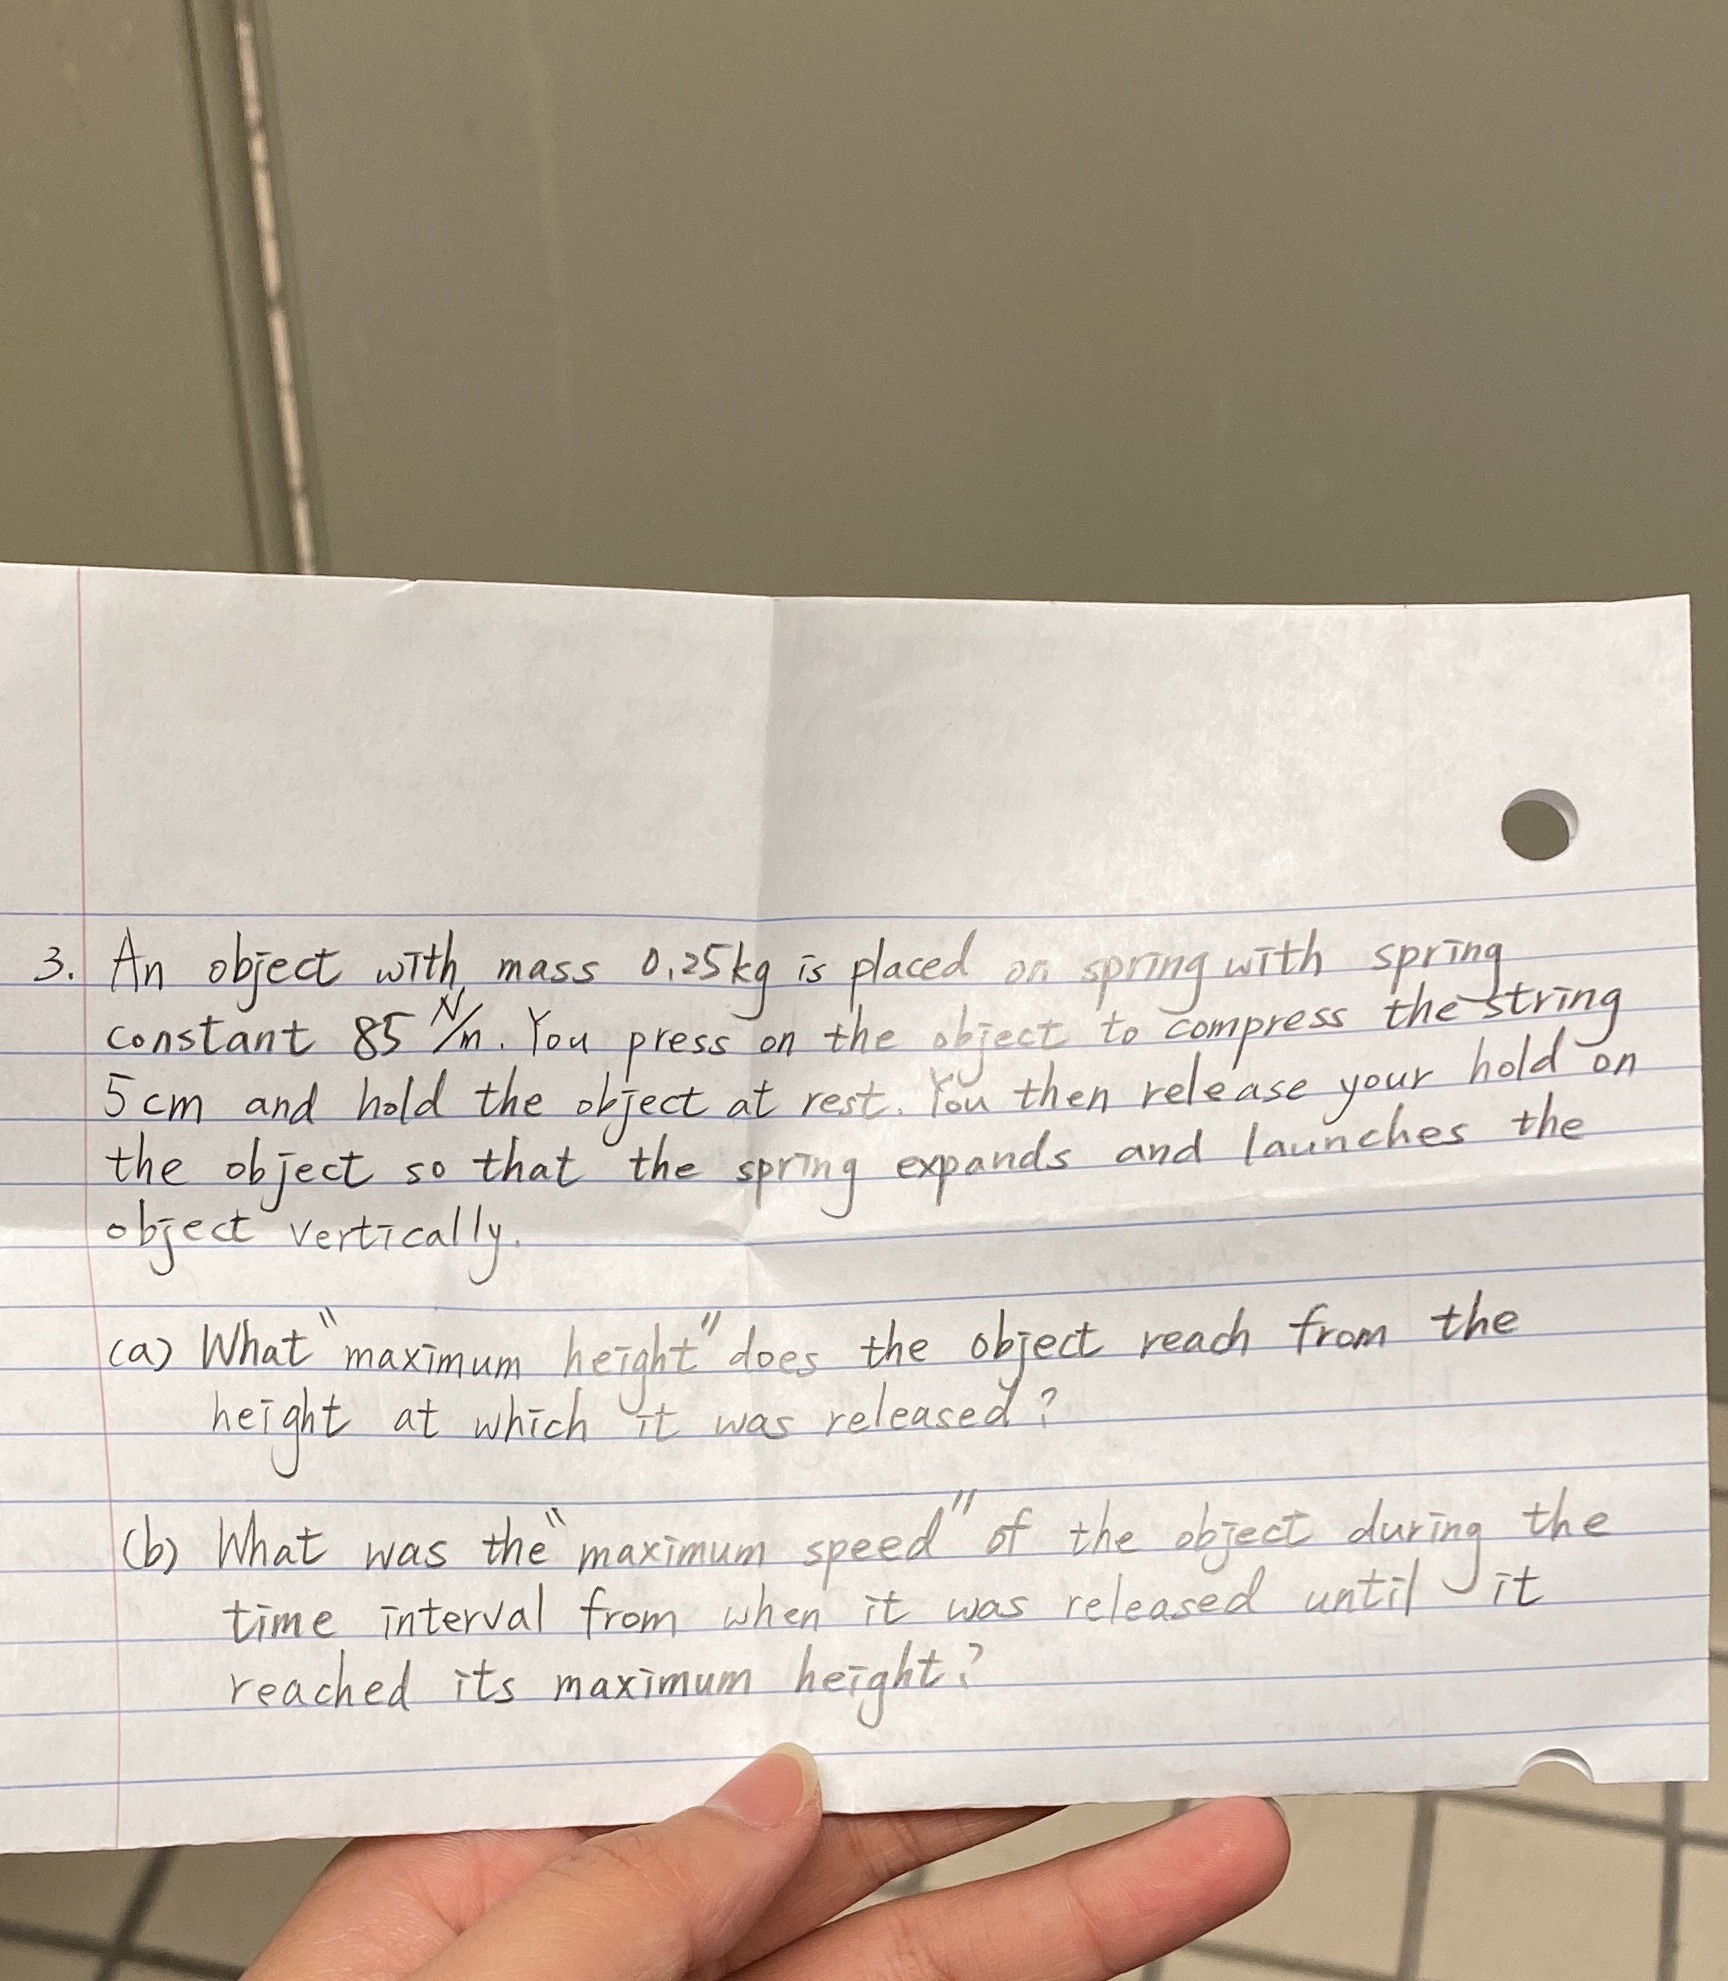 3. An object with mass 0.25kg is placed on spring with spring
constant 85 N/m. You press on the object to compress the string
5cm and hold the object at rest. You then release your hold on
the object so that the spring expands and launches the
object vertically.
(a) What "maximum height" does the object reach from the
height at which it was released?
(b) What was the "maximum speed" of the object during the
time interval from when it was released until it
reached its maximum height?